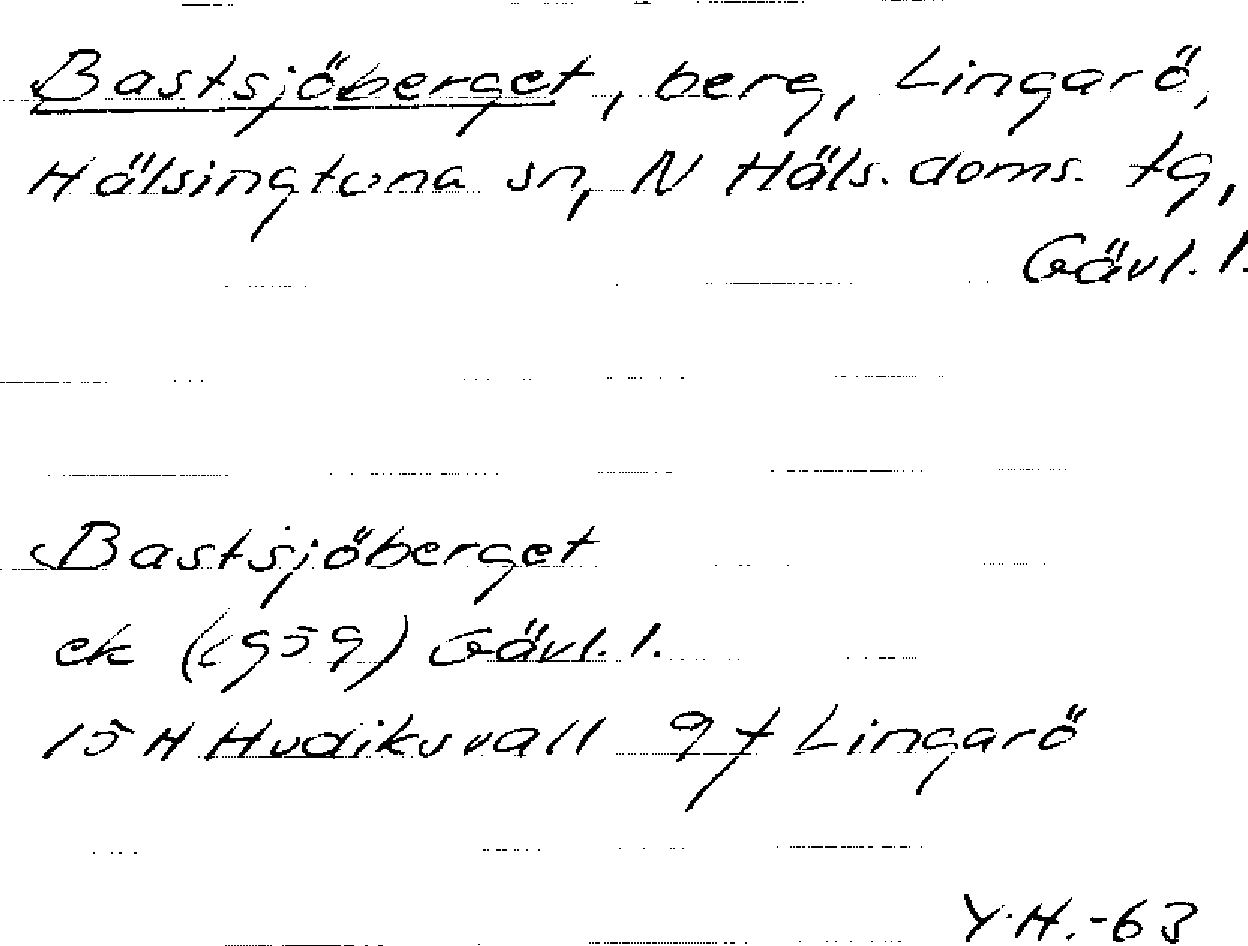 Bastsjöberget, berg, Lingarö,
Hälsingtuna sn, N Häls. doms. tg,
Gävl. l.
Bastsjöberget
ek (1959) Gävl. l.
15 H Hudiksvall 9f Lingarö
Y.H.-63